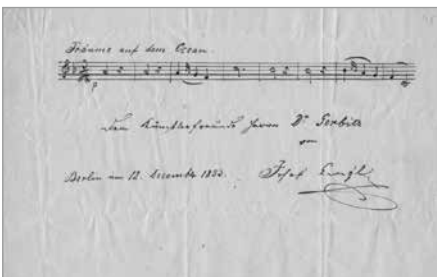 Träume auf dem Ocean.
p
Dem Kunstfreunde Herrn Dr Gerbitz
von
Berlin am 12. Decembr 1853. Josef Gungl